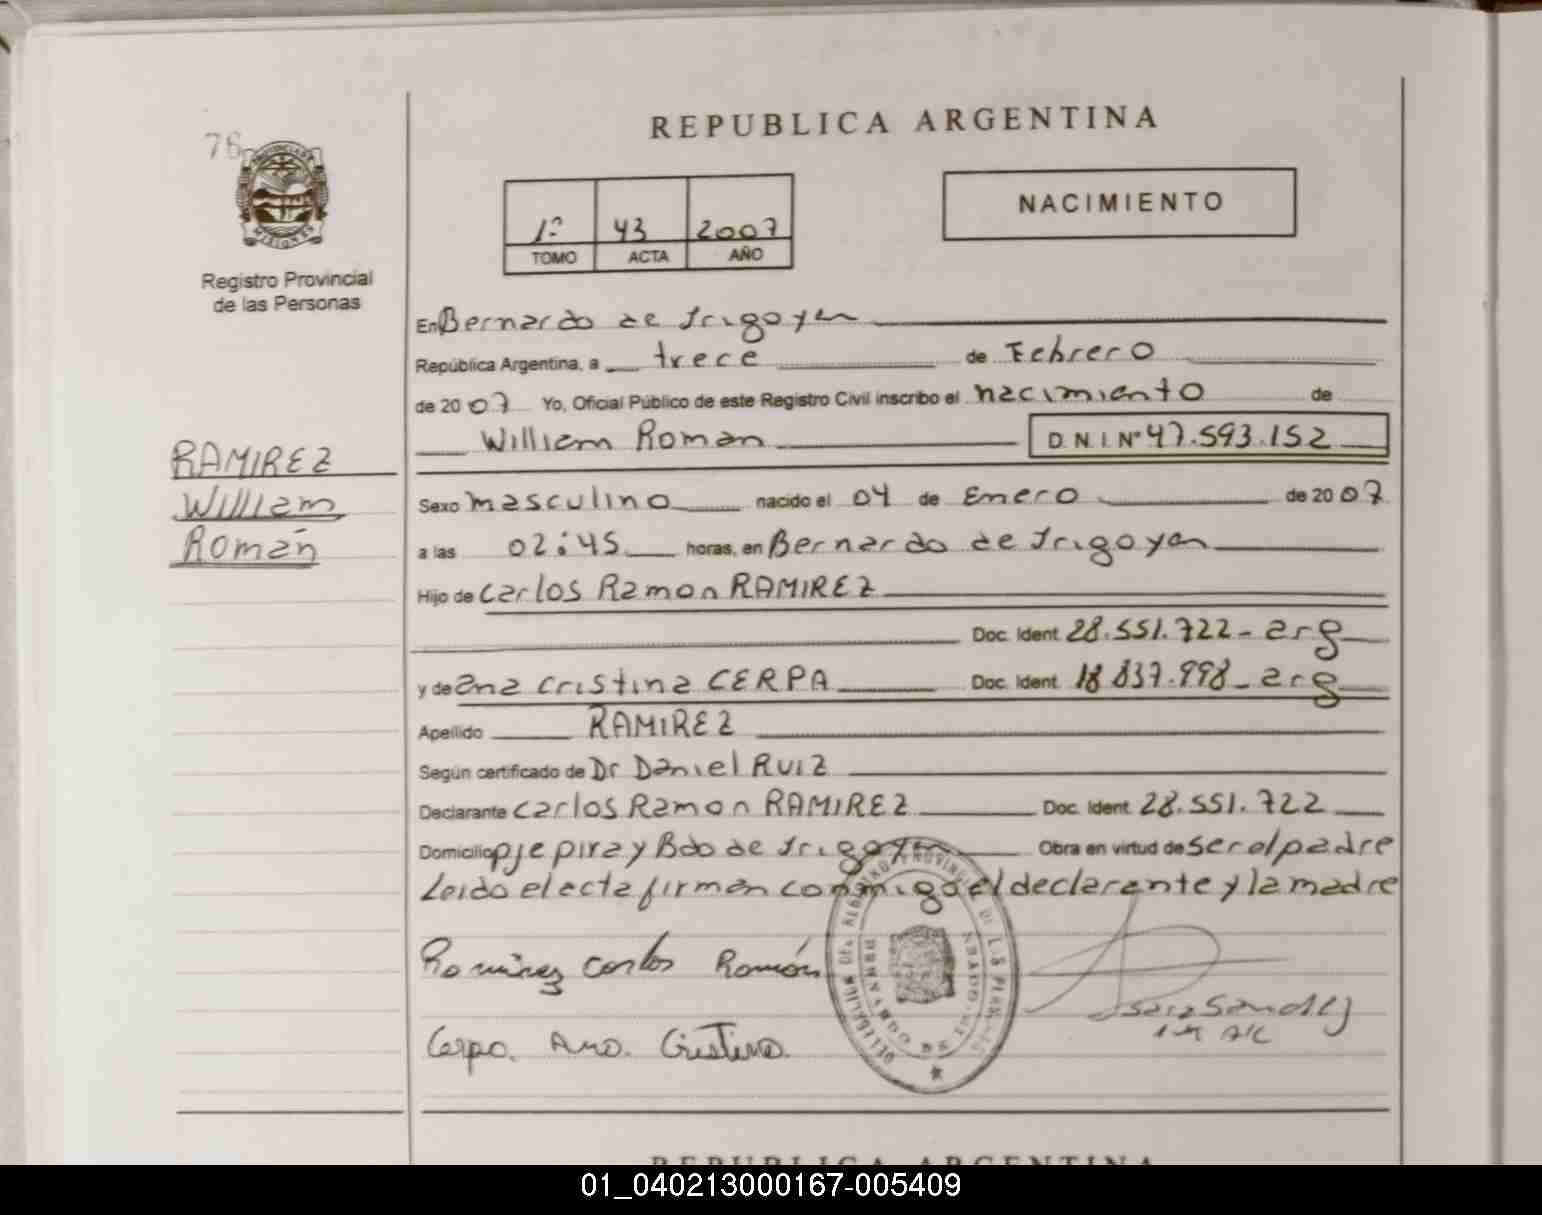 REPUBLICA ARGENTINA
76
PROVINCIA DE
MISIONES
Registro Provincial
de las Personas
1º 43 2007
TOMO ACTA AÑO
NACIMIENTO
En Bernardo de Irigoyen
República Argentina, a trece de Febrero
de 2007 Yo, Oficial Público de este Registro Civil inscribo el nacimiento de
William Roman D.N.I. Nº 47.593.152
RAMIREZ
William
Román
Sexo masculino nacido el 04 de Enero de 2007
a las 02:45 horas, en Bernardo de Irigoyen
Hijo de Carlos Ramon RAMIREZ
Doc. Ident. 28.551.722- arg
y de Ana Cristina CERPA Doc. Ident. 18.837.998- arg
Apellido RAMIREZ
Según certificado de Dr Daniel RUIZ
Declarante Carlos Ramon RAMIREZ Doc. Ident. 28.551.722
Domicilio pje piray Bdo de Irigoyen Obra en virtud de ser el padre
Leido el acta firman conmigo el declarante y la madre
Ramirez Carlos Román
Cerpa. Ana. Cristina.
REPUBLICA ARGENTINA
01_040213000167-005409